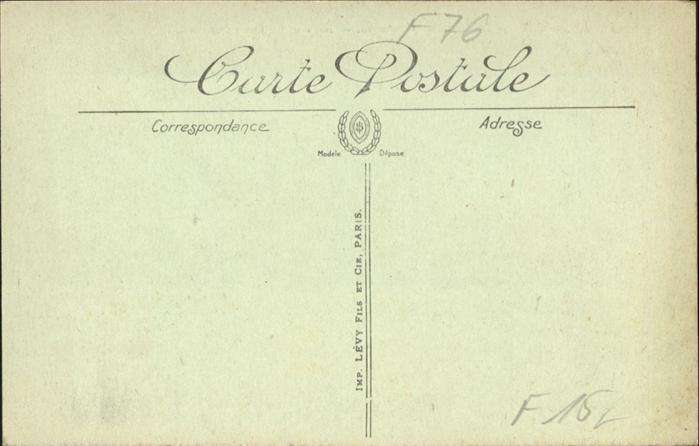 F 76
Carte Postale
Correspondance
Adresse
Modèle Déposé
IMP. LÉVY FILS ET CIE, PARIS.